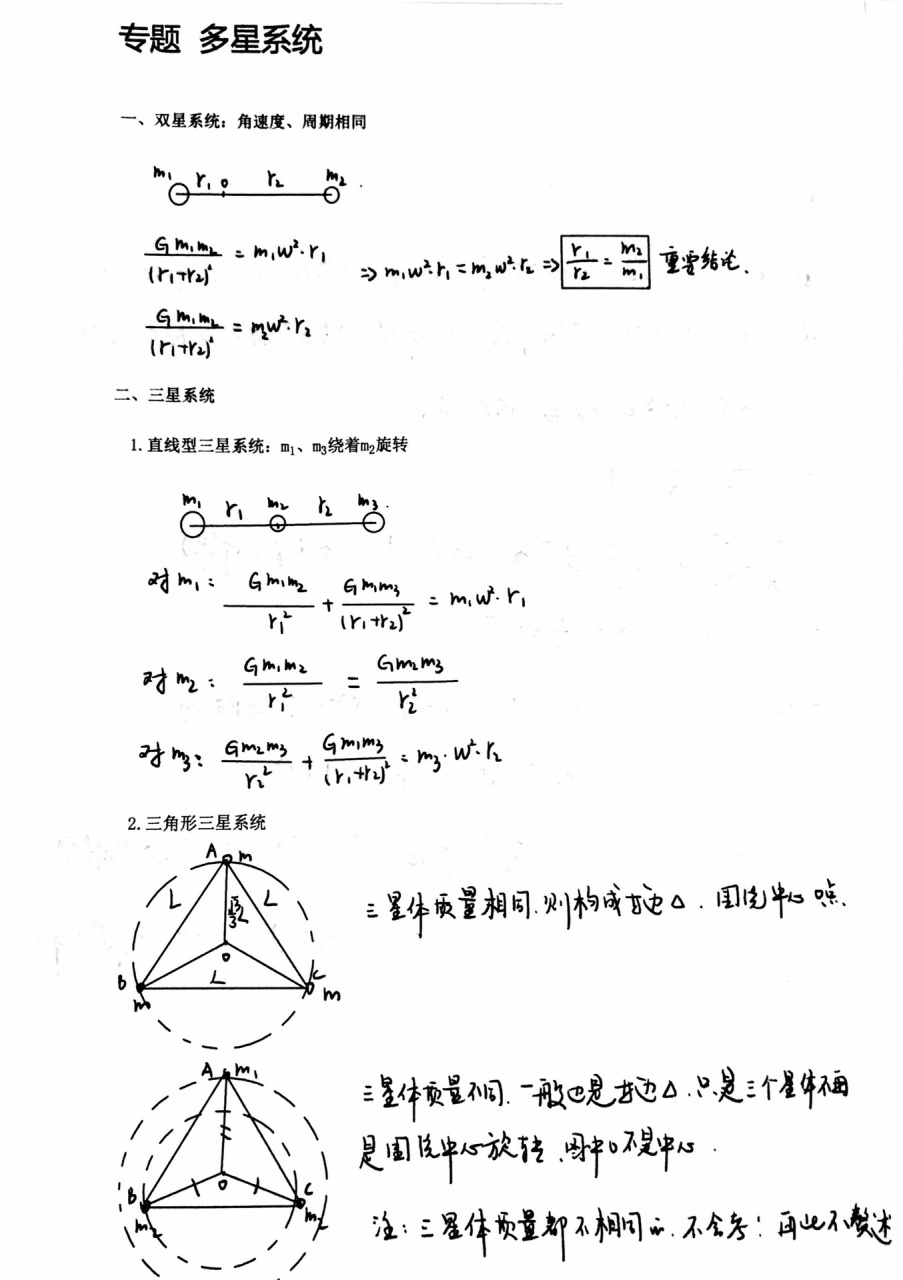 专题 多星系统
一、双星系统：角速度、周期相同
m₁ r₁ o r₂ m₂
Gm₁m₂/(r₁+r₂)² = m₁w²·r₁
⇒ m₁w²·r₁ = m₂w²·r₂ ⇒ r₁/r₂ = m₂/m₁ 重要结论.
Gm₁m₂/(r₁+r₂)² = m₂w²·r₂
二、三星系统
1.直线型三星系统：m₁、m₃绕着m₂旋转
m₁ r₁ m₂ r₂ m₃
对m₁: Gm₁m₂/r₁² + Gm₁m₃/(r₁+r₂)² = m₁w²·r₁
对m₂: Gm₁m₂/r₁² = Gm₂m₃/r₂²
对m₃: Gm₂m₃/r₂² + Gm₁m₃/(r₁+r₂)² = m₃·w²·r₂
2.三角形三星系统
A m
L √3/3 L L
三星体质量相同.则构成等边△.围绕中心o点.
o
B L C
m m
A m₁
三星体质量不同.一般也是等边△.只是三个星体不再
是围绕中心旋转.图中o不是中心.
o
B C
m₂ m₂
注：三星体质量都不相同的.不会考！再此不赘述